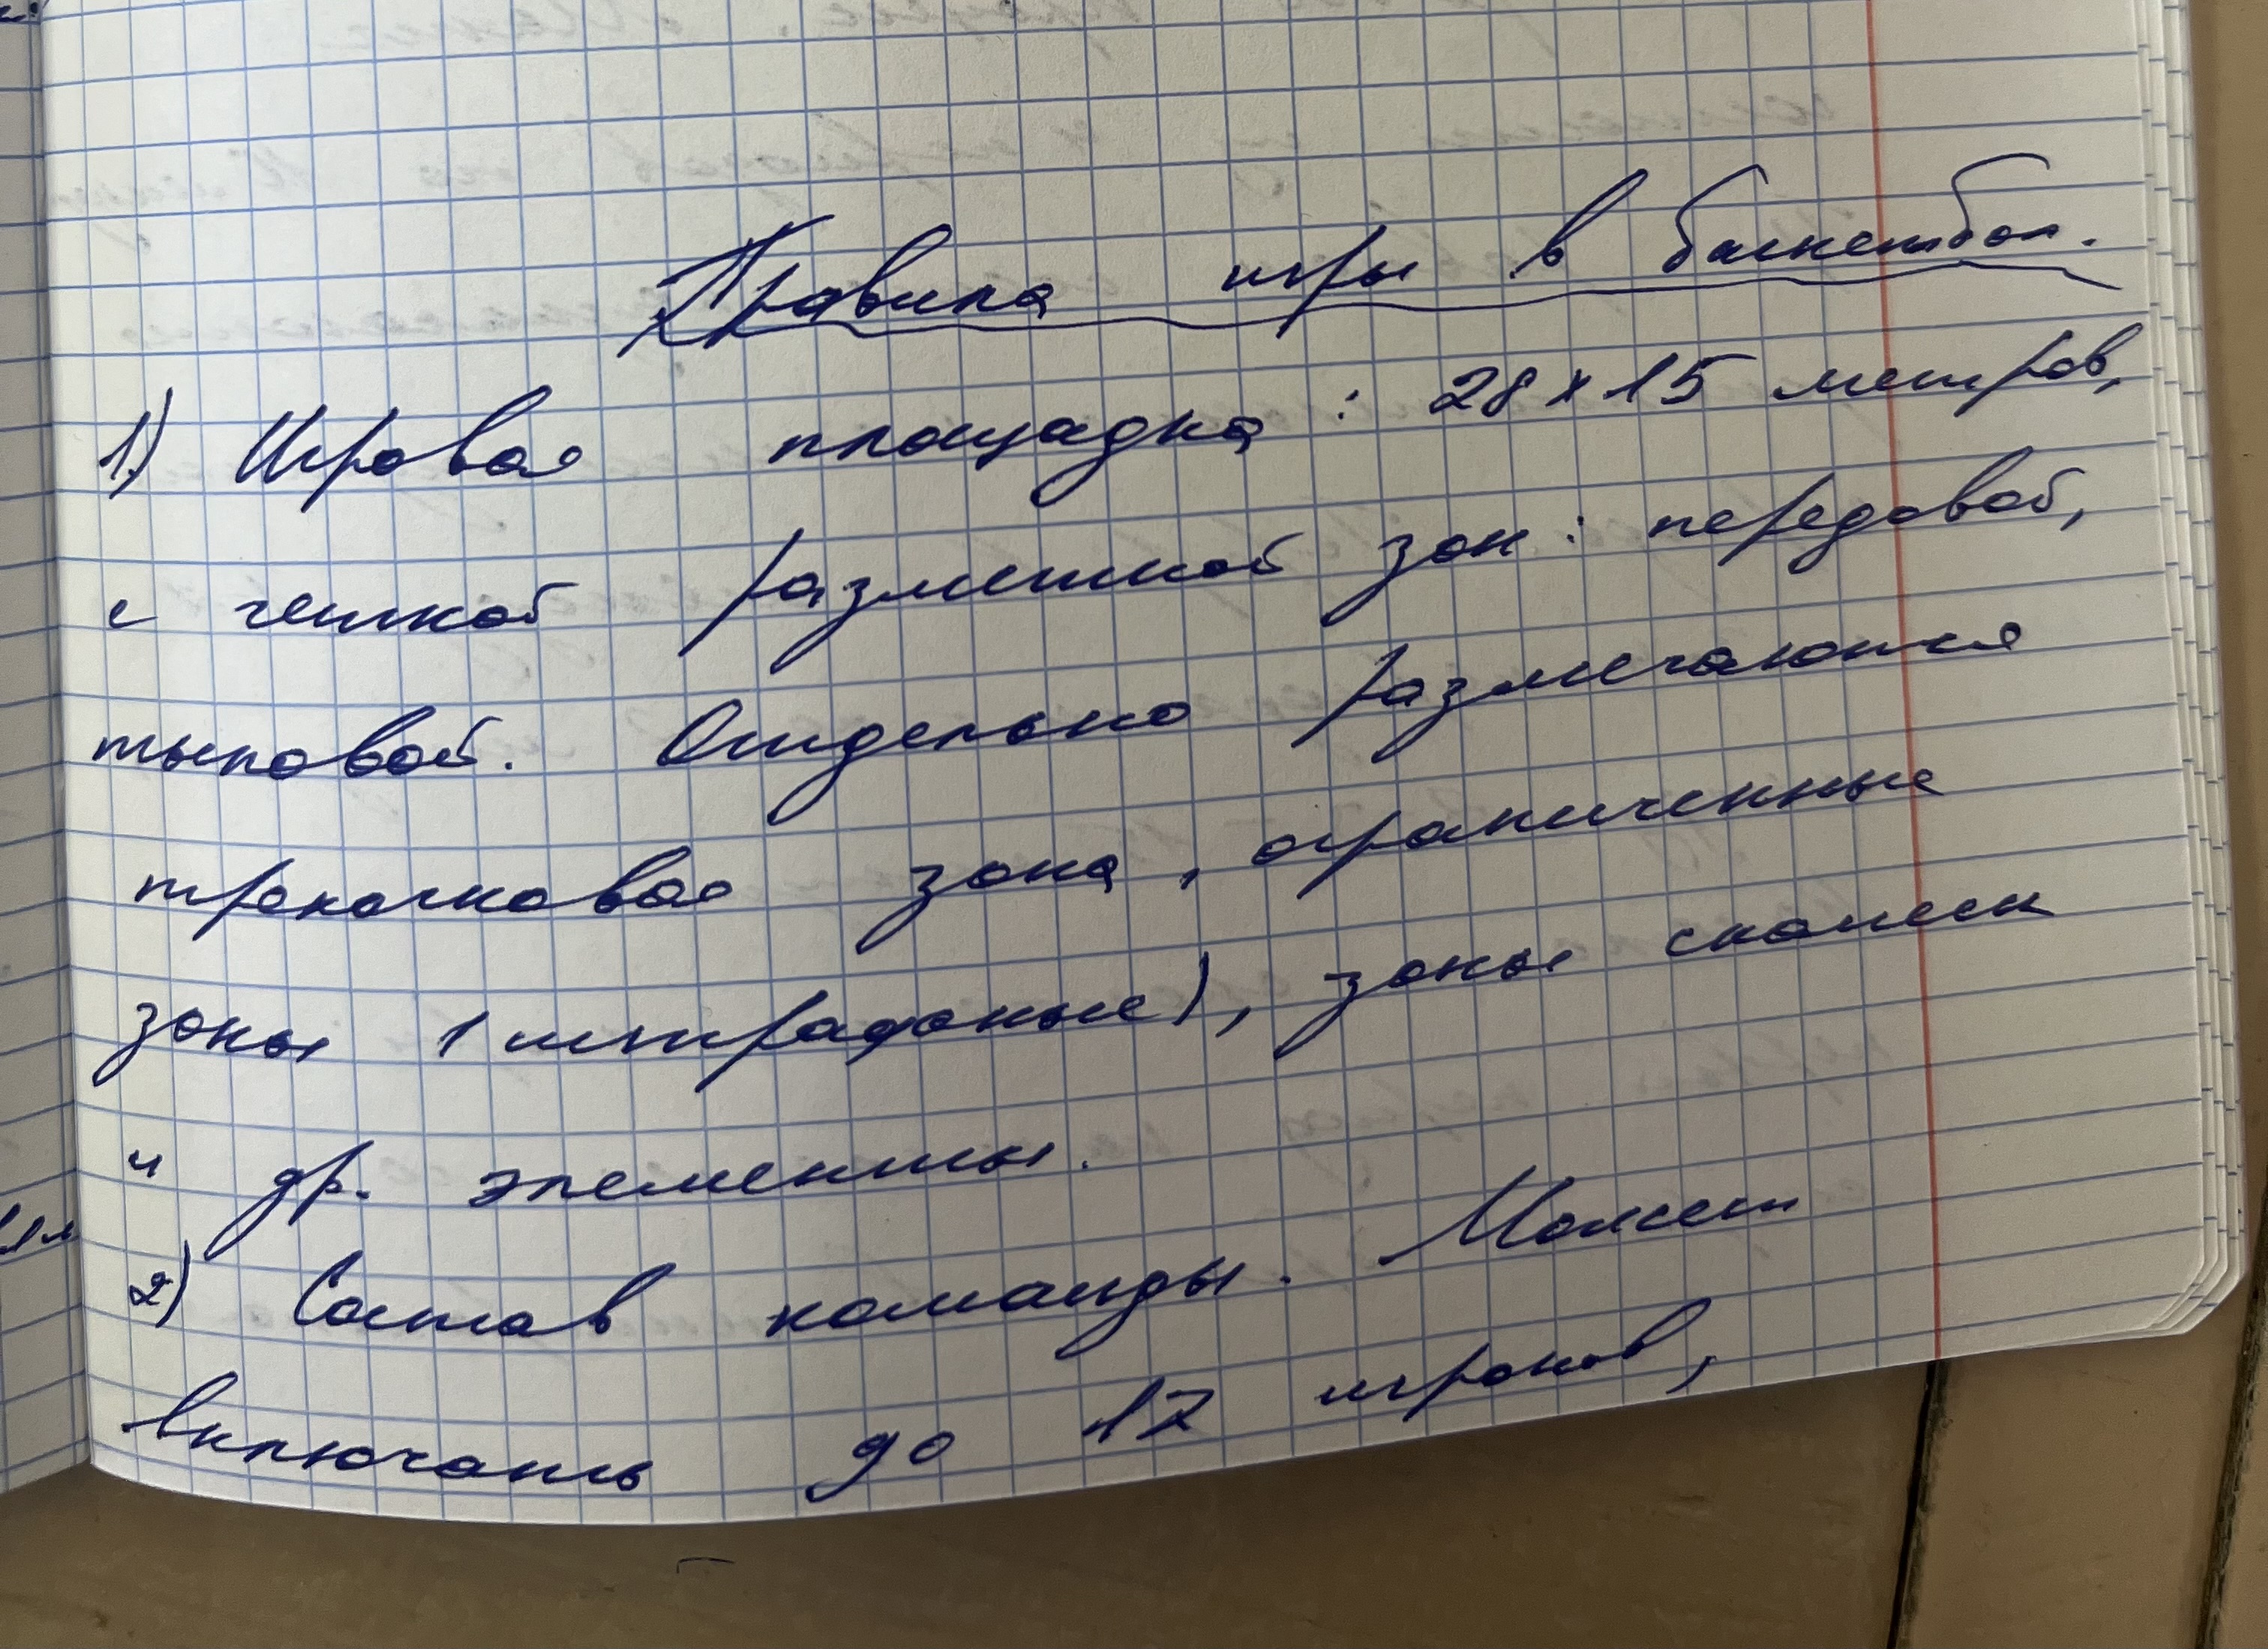 Правила игры в баскетбол.
1) Игровая площадка: 28х15 метров,
с четкой разметкой зон: передовой,
тыловой. Отдельно размечаются
трехочковая зона, ограниченные
зоны (штрафные), зоны скамеек
и др. элементы.
2) Состав команды. Может
включать до 12 игроков,